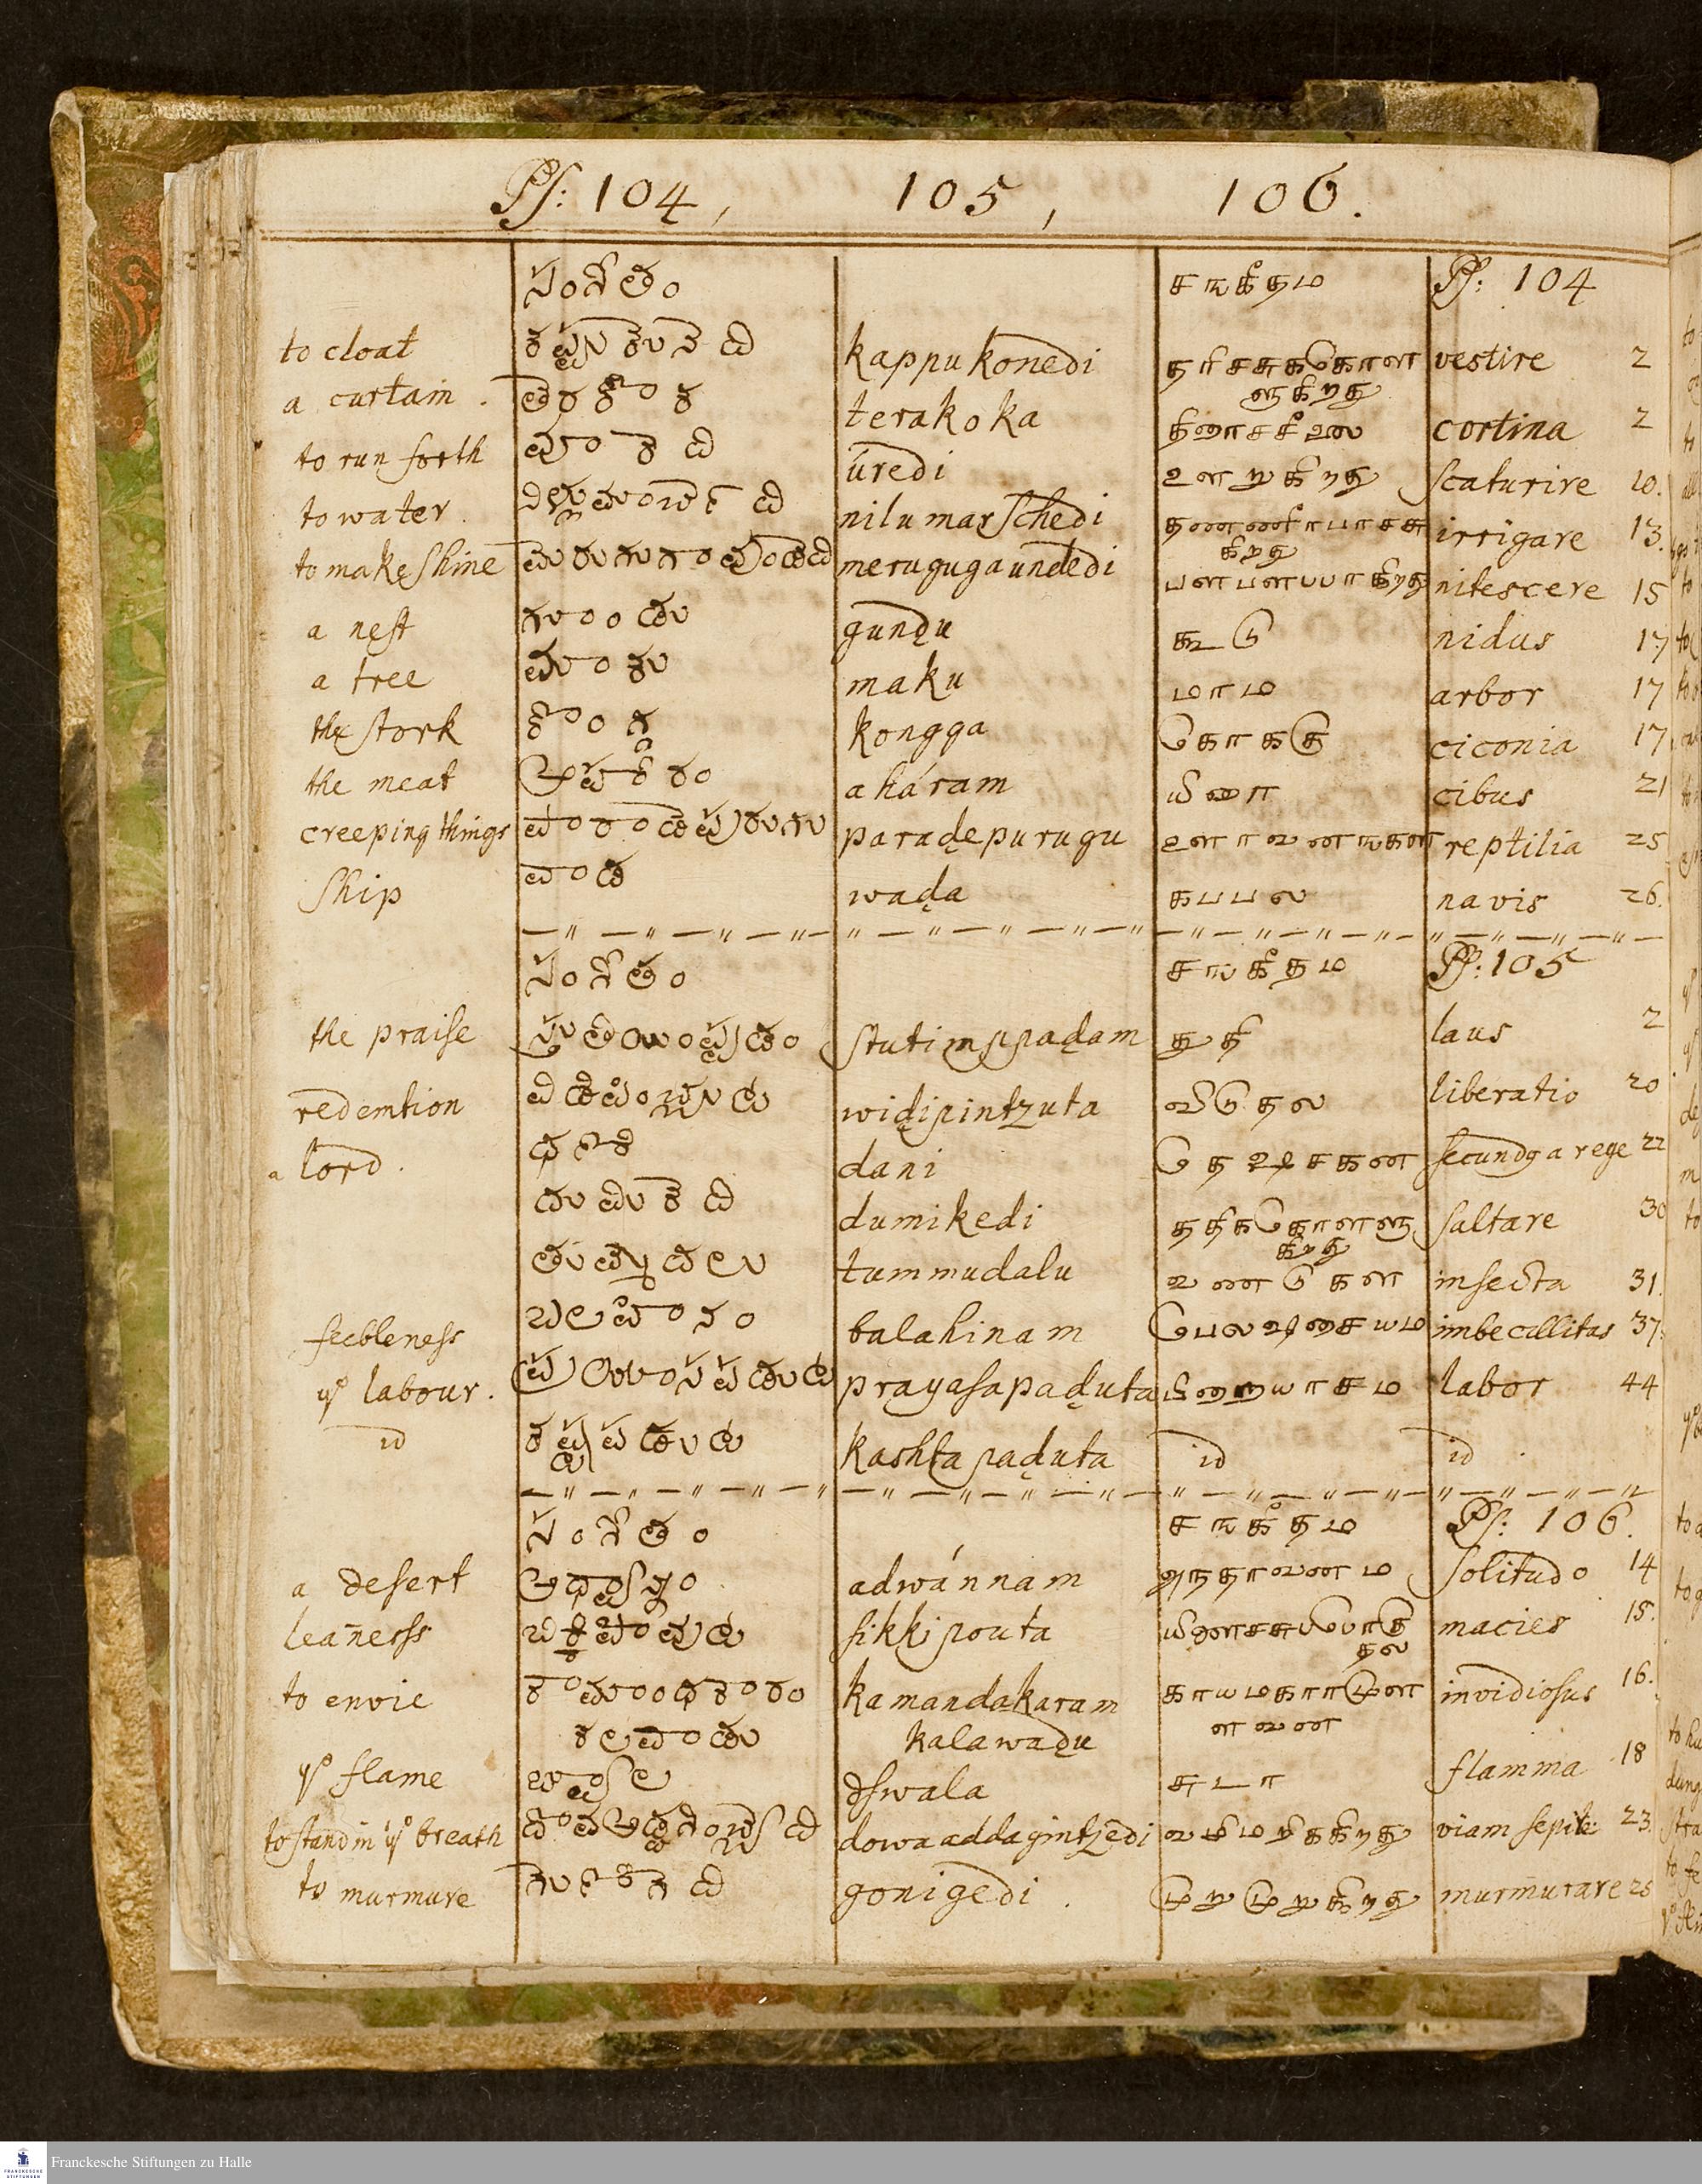 Ps: 104, 105, 106.
సంగీతం சஙகீதம Ps: 104
to cloat కప్పుకొనేది kappukonedi தரிசசுகொள vestire 2
ளுகிறது
a curtain. తెరకోక terakoka திரைசசீலை cortina 2
to run forth ఊరేది úredi ஊறுகிறது scaturire 10.
to water. నిల్లుమార్చేది nilumarschedi தணணீரபாசசு irrigare 13.
கிறது
to make shine మెరుగుగావుండేది merugugaundedi பளபளபபாகிறது nitescere 15
a nest గూండు gundu கூடு nidus 17
a tree మాకు maku மரம arbor 17
the stork కొంగ్గ kongga கொககு ciconia 17
the meat ఆహారం aháram யிரை cibus 21
creeping things పారాడేపురుగు paradepurugu ஊரவனஙகள reptilia 25
ship వాడ wada கபபல navis 26.
సంగీతం சஙகீதம Ps: 105
the praise స్తుతియుంప్పడం stutimppadam துதி laus 2
redemtion విడిపించ్చుట widipintzuta விடுதல liberatio 20
a lord. ధని dani secundg a rege 22
దుమికేది dumikedi ததிகொளளு saltare 30
கிறது
తుమ్ముదలు tummudalu வணடுகள insecta 31.
feebleness బలహీనం balahinam imbecillitas 37.
yͤ labour. ప్రయాసపడుట prayasapaduta labor 44
id కష్టపడుట kashtapaduta id id
సంగీతం சஙகீதம Ps: 106.
a desert అధ్వాన్నం adwánnam solitudo 14
leañerss చిక్కిపోవుట sikkipouta macies 15.
to envie కామాంధకారం kamandakaram invidiosus 16.
కలవాడు kalawadu ளவன
yͤ flame జ్వాల dswala flamma 18
to stand in yͤ breath దోవఅడ్డగించ్చేది dowaaddagintzedi வழிமறிககிறது viam sepite 23.
to murmure గొణిగేది gonigedi. முறுமுறுகிறது murmurare 25
Franckesche Stiftungen zu Halle